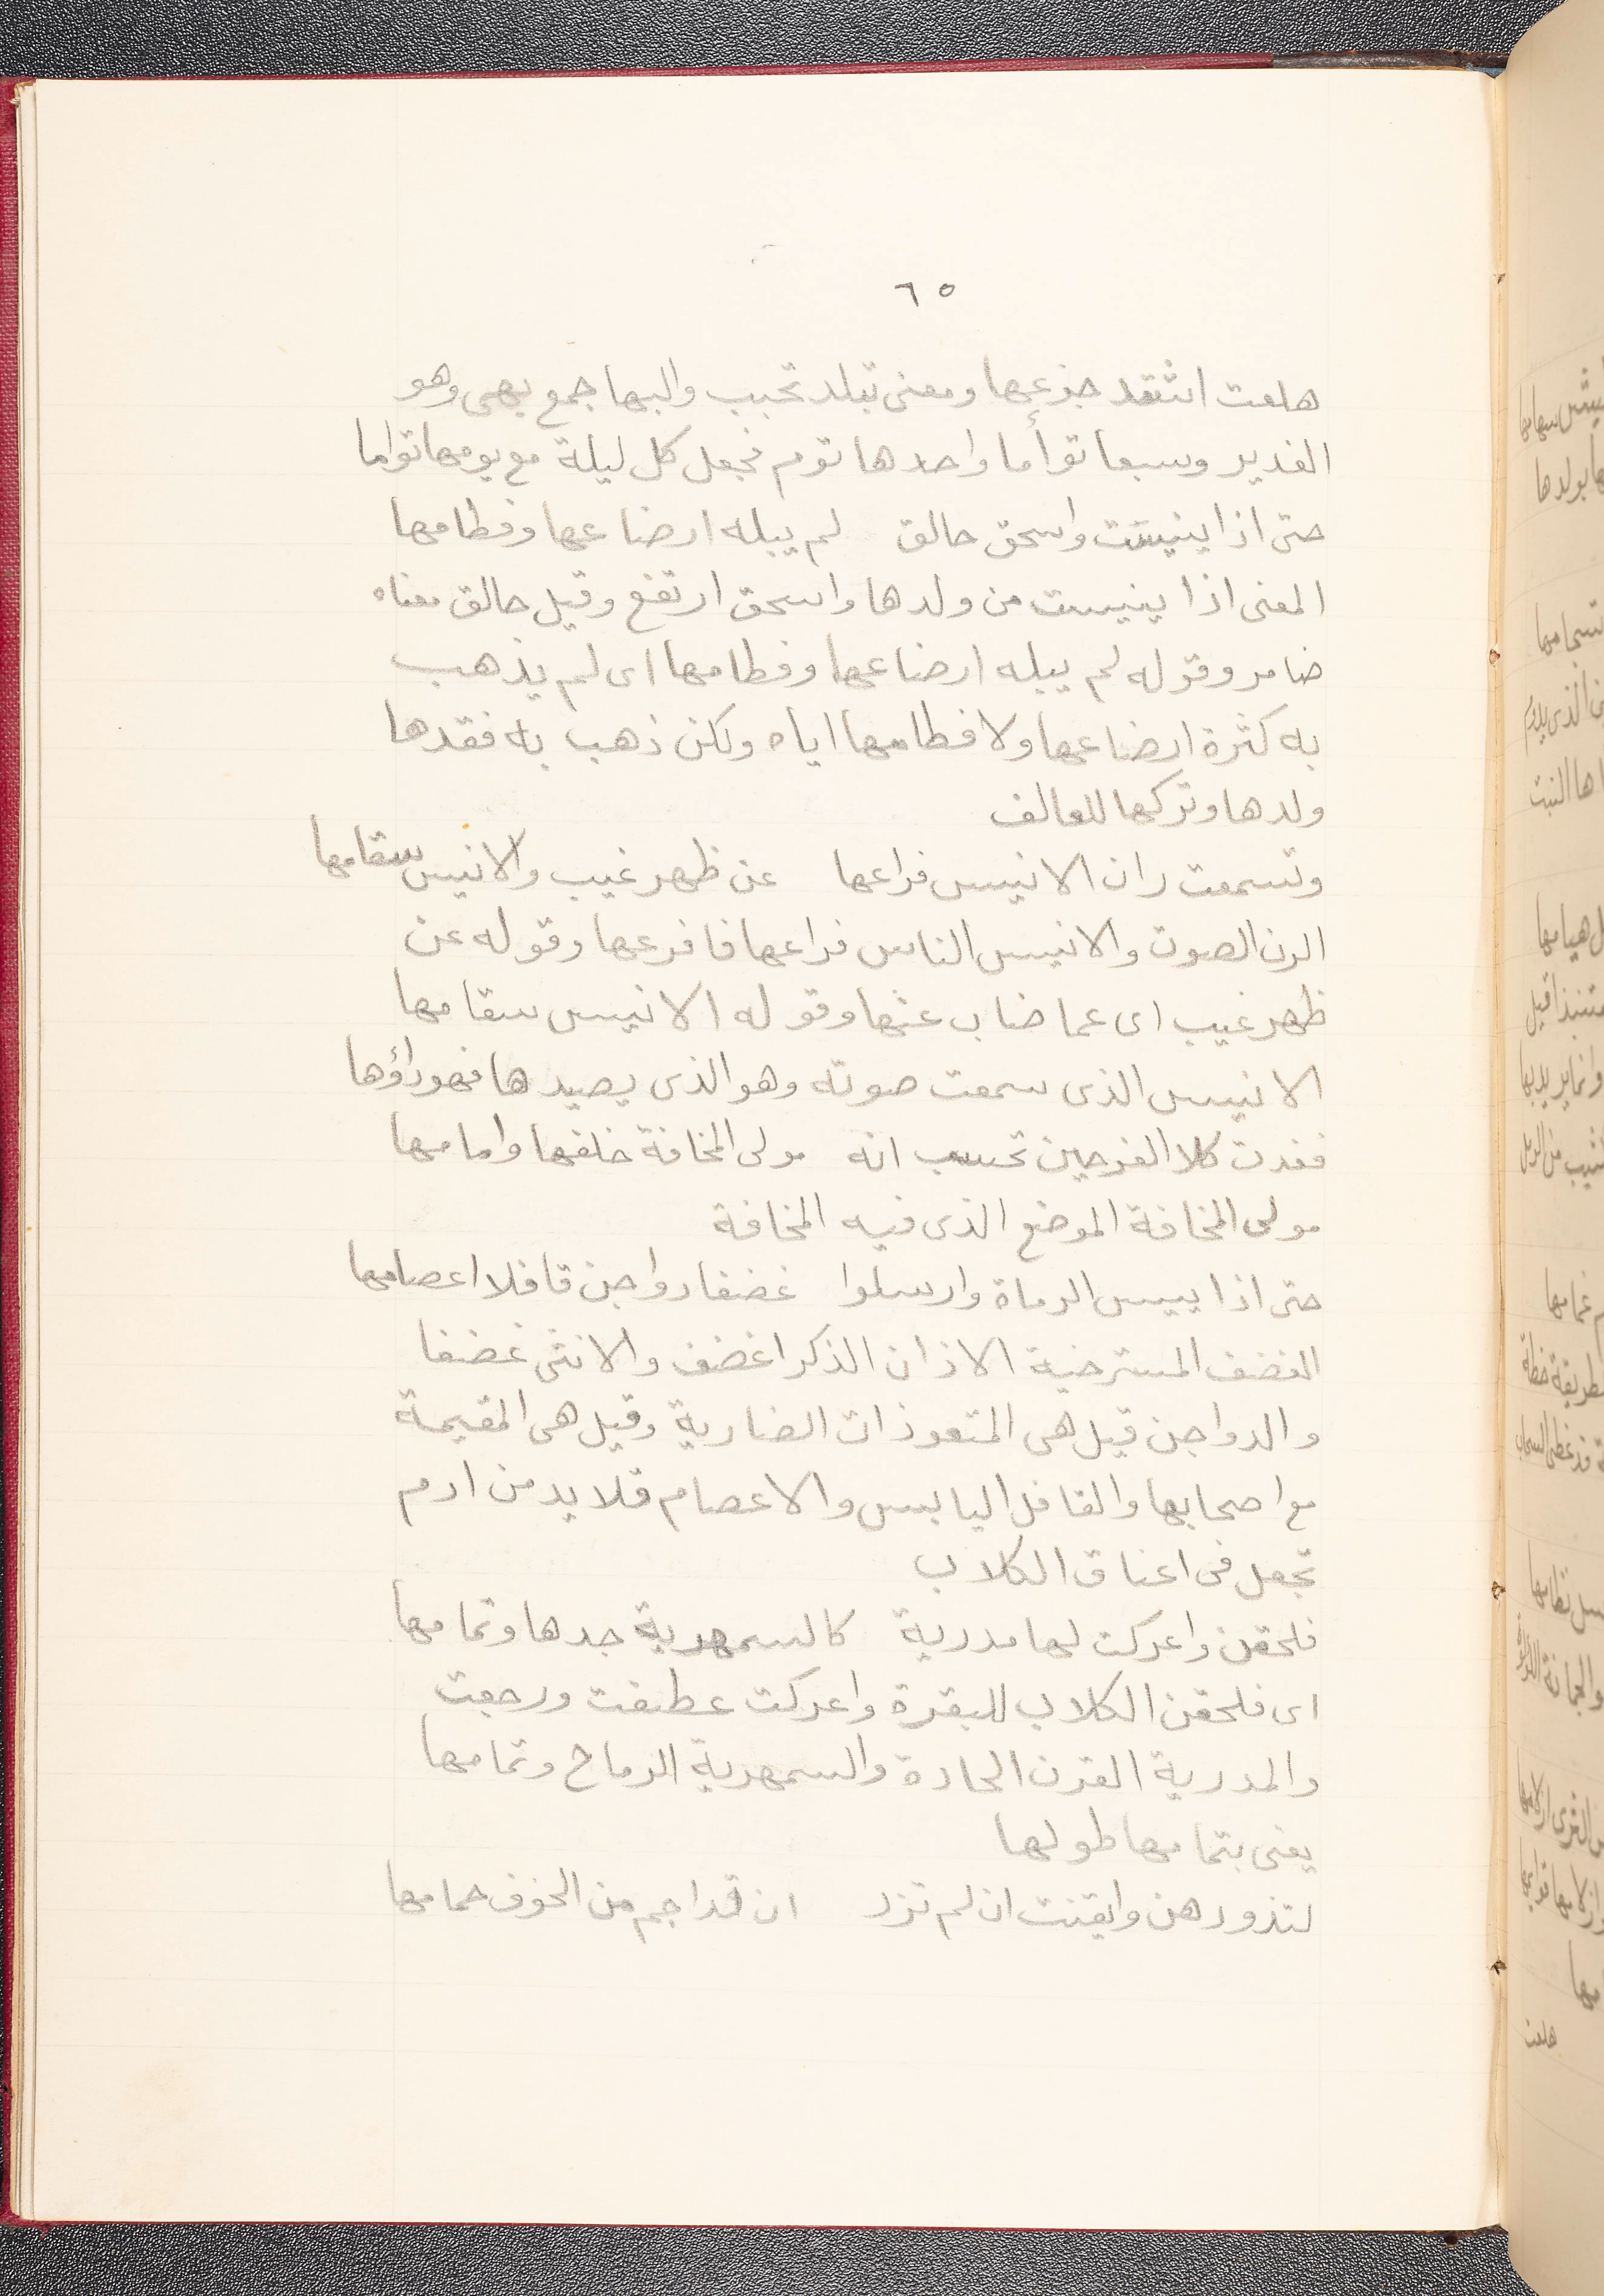 ٦٥
هلعت اشتد جزعها ومعنى تبلد تحبب والبها جمع بهى وهو
الغدير وسبعا توأما واحدها توم فجعل كل ليلة مع يومها تواما
حتى اذا ينيست واسحق حالق لم يبله ارضاعها وفطامها
المعنى اذا ينيست من ولدها واسحق ارتفع وقيل حالق معناه
ضامر وقوله لم يبله ارضاعها وفطامها اى لم يذهب
به كثرة ارضاعها ولا فطامها اياه ولكن ذهب به فقدها
ولدها وتركها للعالف
وتسمعت رزن الانيس فراعها عن ظهر غيب والانيس سقامها
الرن الصوت والانيس الناس فراعها فافزعها وقوله عن
ظهر غيب اى عما ضاب عنها وقوله الانيس سقامها
الانيس الذى سمعت صوته وهو الذى يصيدها فهو داؤها
فغدت كلا الفرجين تحسب انه مولى المخافة خلفها وامامها
مولى المخافة الموضع الذى فيه المخافة
حتى اذا ييس الرماة وارسلوا غضفا دواجن قافلا اعصامها
الغضف المسترخية الاذان الذكر اغضف والانثى غضفا
والدواجن قيل هى المتعوذات الضارية وقيل هى المقيمة
مع اصحابها والقافل اليابس والاعصام قلايد من ادم
تجعل فى اعناق الكلاب
فلحقن واعدكت لها مدرية كالسمهرية حدها وتمامها
اى فلحقن الكلاب للبقرة واعدكت عطفت ورجعت
والمدرية القرن الحادة والسمهرية الرماح وتمامها
يعنى بتمامها طولها
لتذودهن وايقنت ان لم تزد ان قد اجم من الحوف حمامها